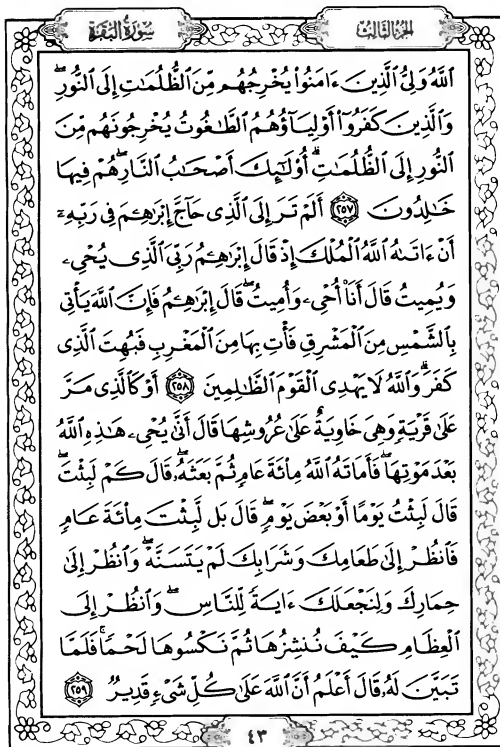 سُورَةُ البَقَرَة
الجزء الثالث
ٱللَّهُ وَلِىُّ ٱلَّذِينَ ءَامَنُوا۟ يُخْرِجُهُم مِّنَ ٱلظُّلُمَـٰتِ إِلَى ٱلنُّورِ ۖ
وَٱلَّذِينَ كَفَرُوٓا۟ أَوْلِيَآؤُهُمُ ٱلطَّـٰغُوتُ يُخْرِجُونَهُم مِّنَ
ٱلنُّورِ إِلَى ٱلظُّلُمَـٰتِ ۗ أُو۟لَـٰٓئِكَ أَصْحَـٰبُ ٱلنَّارِ ۖ هُمْ فِيهَا
خَـٰلِدُونَ ٢٥٧ أَلَمْ تَرَ إِلَى ٱلَّذِى حَآجَّ إِبْرَٰهِـۧمَ فِى رَبِّهِۦٓ
أَنْ ءَاتَىٰهُ ٱللَّهُ ٱلْمُلْكَ إِذْ قَالَ إِبْرَٰهِـۧمُ رَبِّىَ ٱلَّذِى يُحْىِۦ
وَيُمِيتُ قَالَ أَنَا۠ أُحْىِۦ وَأُمِيتُ ۖ قَالَ إِبْرَٰهِـۧمُ فَإِنَّ ٱللَّهَ يَأْتِى
بِٱلشَّمْسِ مِنَ ٱلْمَشْرِقِ فَأْتِ بِهَا مِنَ ٱلْمَغْرِبِ فَبُهِتَ ٱلَّذِى
كَفَرَ ۗ وَٱللَّهُ لَا يَهْدِى ٱلْقَوْمَ ٱلظَّـٰلِمِينَ ٢٥٨ أَوْ كَٱلَّذِى مَرَّ
عَلَىٰ قَرْيَةٍ وَهِىَ خَاوِيَةٌ عَلَىٰ عُرُوشِهَا قَالَ أَنَّىٰ يُحْىِۦ هَـٰذِهِ ٱللَّهُ
بَعْدَ مَوْتِهَا ۖ فَأَمَاتَهُ ٱللَّهُ مِا۟ئَةَ عَامٍ ثُمَّ بَعَثَهُۥ ۖ قَالَ كَمْ لَبِثْتَ ۖ
قَالَ لَبِثْتُ يَوْمًا أَوْ بَعْضَ يَوْمٍ ۖ قَالَ بَل لَّبِثْتَ مِا۟ئَةَ عَامٍ
فَٱنظُرْ إِلَىٰ طَعَامِكَ وَشَرَابِكَ لَمْ يَتَسَنَّهْ ۖ وَٱنظُرْ إِلَىٰ
حِمَارِكَ وَلِنَجْعَلَكَ ءَايَةً لِّلنَّاسِ ۖ وَٱنظُرْ إِلَى
ٱلْعِظَامِ كَيْفَ نُنشِزُهَا ثُمَّ نَكْسُوهَا لَحْمًا ۚ فَلَمَّا
تَبَيَّنَ لَهُۥ قَالَ أَعْلَمُ أَنَّ ٱللَّهَ عَلَىٰ كُلِّ شَىْءٍ قَدِيرٌ ٢٥٩
٤٣